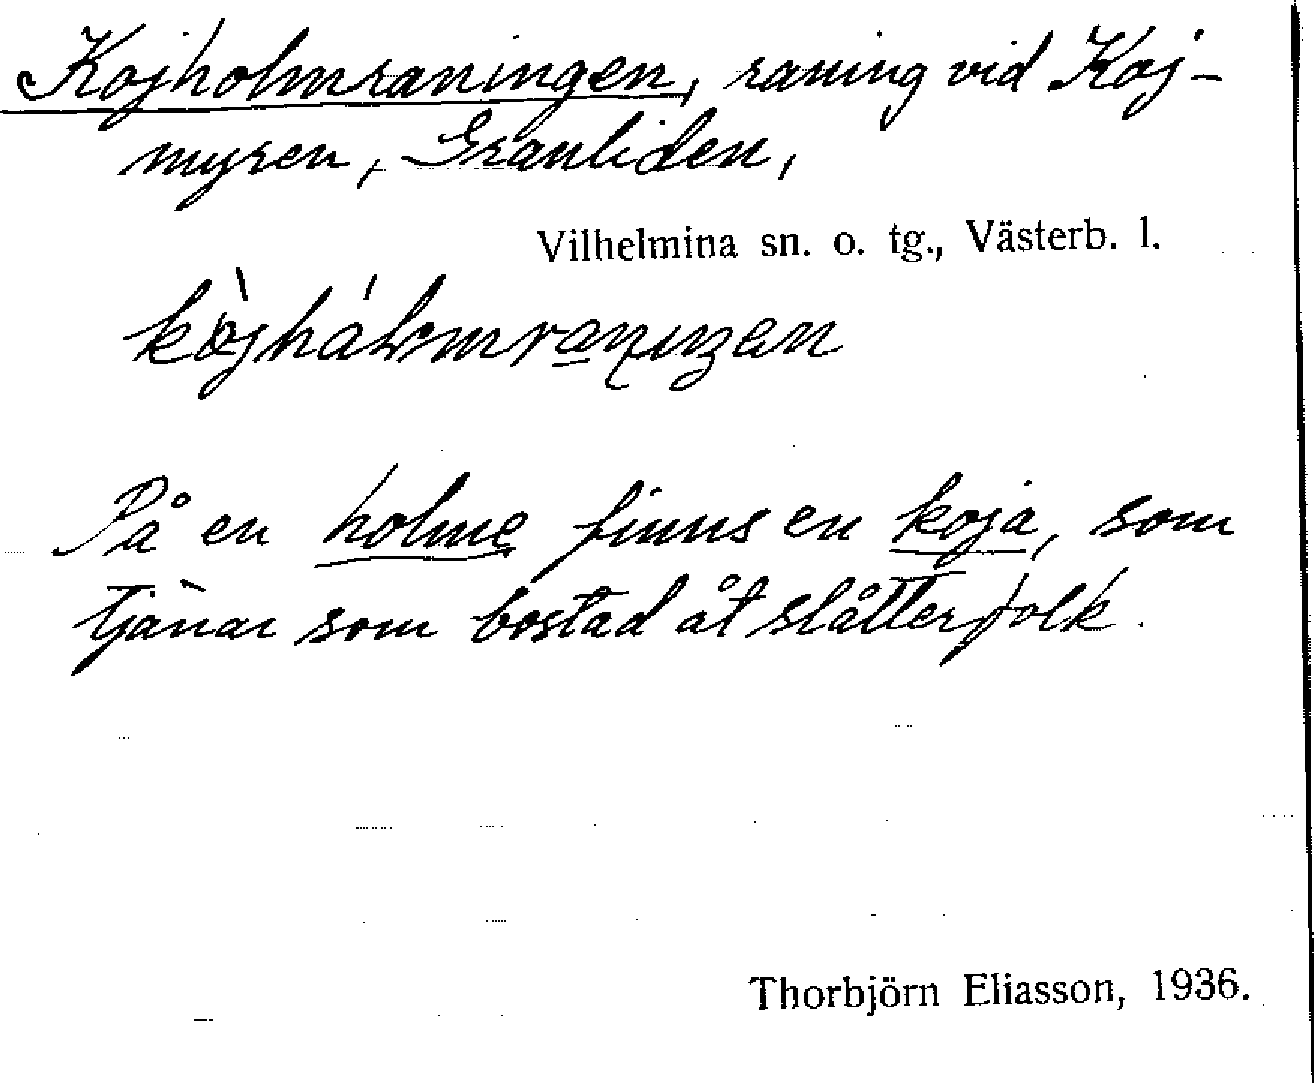 Kojholmraningen, raning vid Koj-
myren, Granliden,
Vilhelmina sn. o. tg., Västerb. l.
På en holme finns en koja, som
tjänar som bostad åt slåtterfolk.
Thorbjörn Eliasson, 1936.